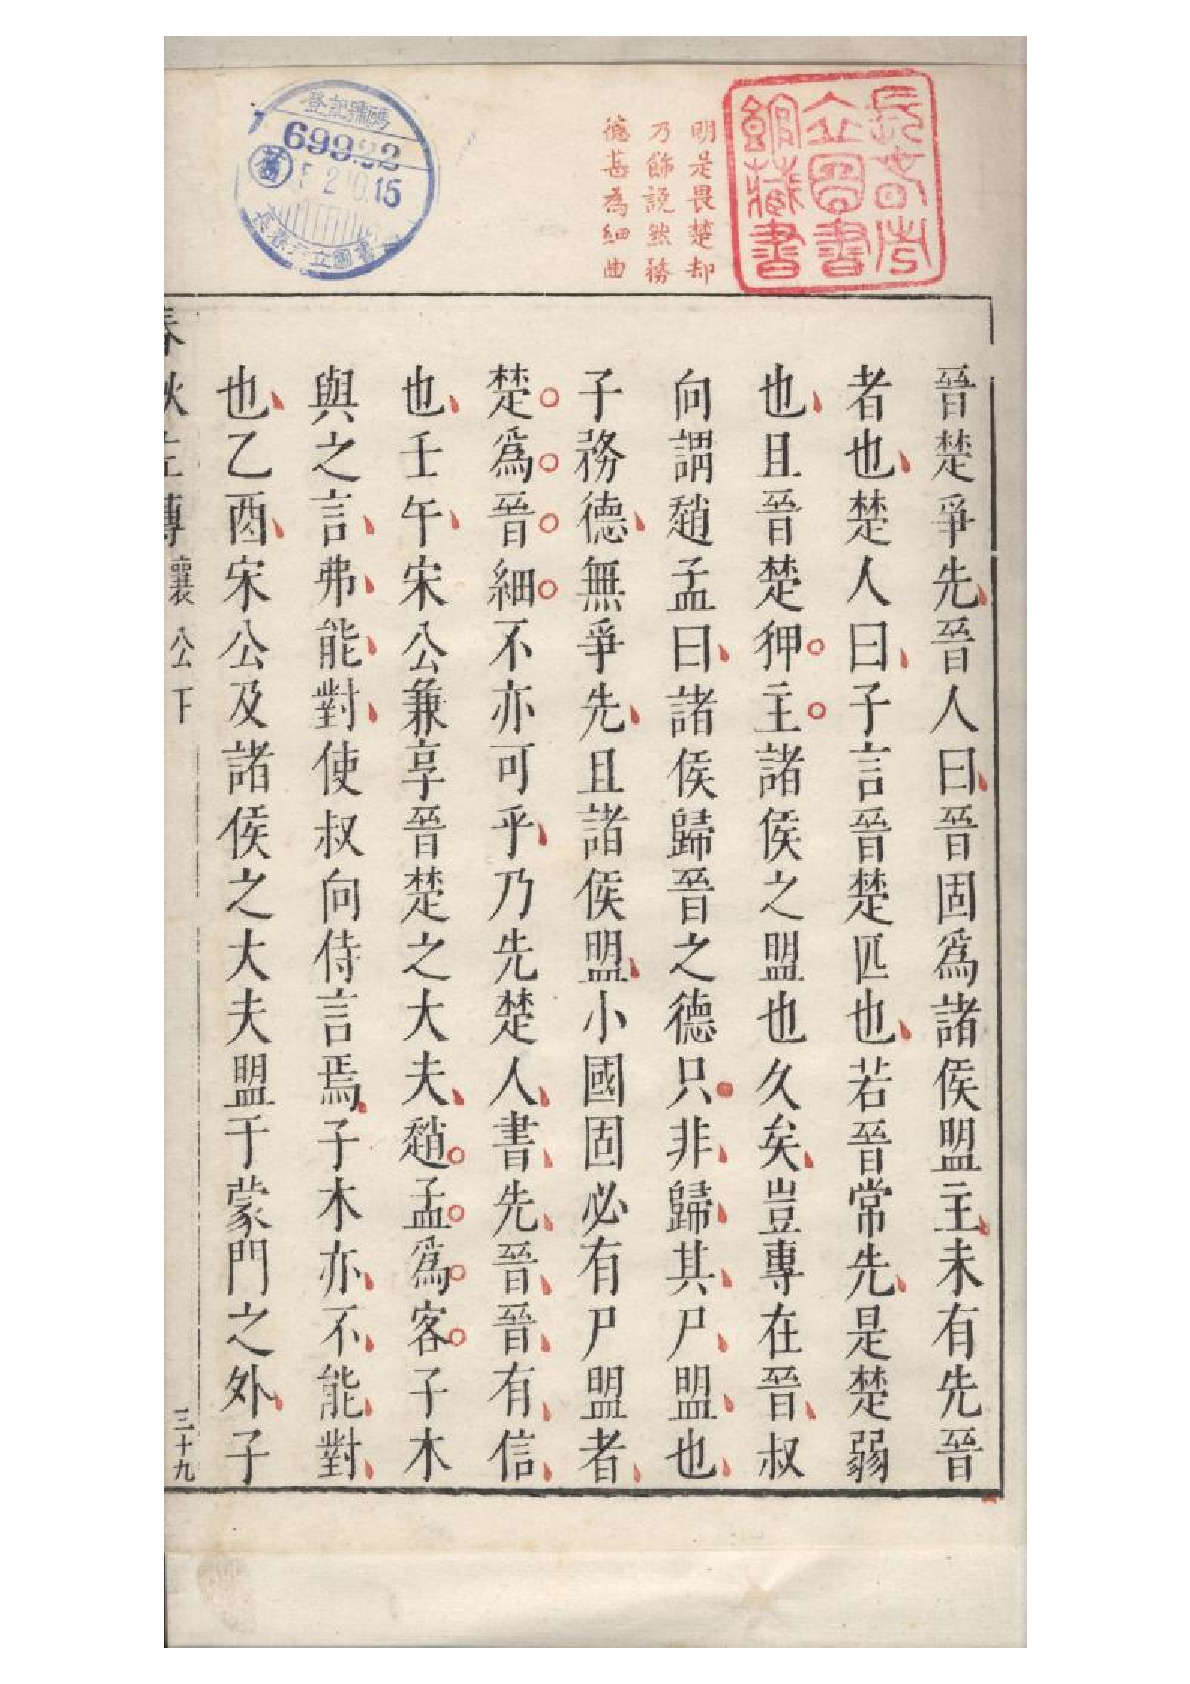 長春市
立圖書
館藏書
明是畏楚却
乃飾說然務
德甚爲細曲
登記號碼
69922
舊
5 2 10.15
長春市立圖書
晉楚爭先晉人曰晉固爲諸侯盟主未有先晉
者也楚人曰子言晉楚匹也若晉常先是楚弱
也且晉楚狎主諸侯之盟也久矣豈專在晉叔
向謂趙孟曰諸侯歸晉之德只非歸其尸盟也
子務德無爭先且諸侯盟小國固必有尸盟者
楚爲晉細不亦可乎乃先楚人書先晉晉有信
也壬午宋公兼享晉楚之大夫趙孟爲客子木
與之言弗能對使叔向侍言焉子木亦不能對
也乙酉宋公及諸侯之大夫盟于蒙門之外子
春秋左傳 襄公下 三十九